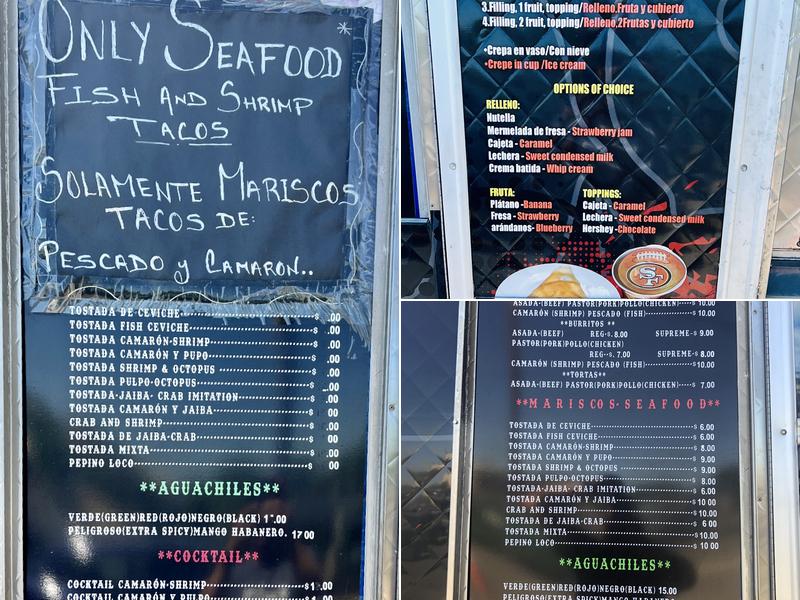 ONLY SEAFOOD *
FISH AND SHRIMP
TACOS
SOLAMENTE MARISCOS
TACOS DE:
PESCADO y CAMARON..
TOSTADA DE CEVICHE $ .00
TOSTADA FISH CEVICHE $ .00
TOSTADA CAMARÓN-SHRIMP $ .00
TOSTADA CAMARÓN Y PUPO $ .00
TOSTADA SHRIMP & OCTOPUS $ .00
TOSTADA PULPO-OCTOPUS $ .00
TOSTADA-JAIBA- CRAB IMITATION $ .00
TOSTADA CAMARÓN Y JAIBA $ 00
CRAB AND SHRIMP $ .00
TOSTADA DE JAIBA-CRAB $ .00
TOSTADA MIXTA $ .00
PEPINO LOCO $ 00
**AGUACHILES**
VERDE(GREEN)RED(ROJO)NEGRO(BLACK)
PELIGROSO(EXTRA SPICY)MANGO HABANERO. 17 00
**COCKTAIL**
COCKTAIL CAMARÓN-SHRIMP
COCKTAIL CAMARÓN Y PULPO
3.Filling, 1 fruit, topping/Relleno,Fruta y cubierto
4.Filling, 2 fruit, topping/Relleno,2Frutas y cubierto
•Crepa en vaso/Con nieve
•Crepe in cup /Ice cream
OPTIONS OF CHOICE
RELLENO:
Nutella
Mermelada de fresa - Strawberry jam
Cajeta - Caramel
Lechera - Sweet condensed milk
Crema batida - Whip cream
FRUTA:
Plátano -Banana
Fresa - Strawberry
arándanos- Blueberry
TOPPINGS:
Cajeta - Caramel
Lechera - Sweet condensed milk
Hershey -Chocolate
SF
ASADA-(BEEF) PASTOR(PORK)POLLO(CHICKEN) 10.00
CAMARÓN (SHRIMP) PESCADO (FISH) $ 10.00
**BURRITOS **
ASADA-(BEEF) REG-$. 8.00 SUPREME-$ 9.00
PASTOR(PORK)POLLO(CHICKEN)
REG-$. 7.00 SUPREME-$ 8.00
CAMARÓN (SHRIMP) PESCADO (FISH) $10.00
**TORTAS**
ASADA-(BEEF) PASTOR(PORK)POLLO(CHICKEN) $ 7.00
**MARISCOS-SEAFOOD**
TOSTADA DE CEVICHE $ 6.00
TOSTADA FISH CEVICHE $ 6.00
TOSTADA CAMARÓN-SHRIMP $ 8.00
TOSTADA CAMARÓN Y PUPO $ 9.00
TOSTADA SHRIMP & OCTOPUS $ 9.00
TOSTADA PULPO-OCTOPUS $ 8.00
TOSTADA-JAIBA- CRAB IMITATION $ 6.00
TOSTADA CAMARÓN Y JAIBA $ 10 00
CRAB AND SHRIMP $ 10.00
TOSTADA DE JAIBA-CRAB $ 6 00
TOSTADA MIXTA $ 10.00
PEPINO LOCO $ 10 00
**AGUACHILES**
VERDE(GREEN)RED(ROJO)NEGRO(BLACK) 15.00
PELIGROSO(EXTRA SPICY)MANGO HABANERO